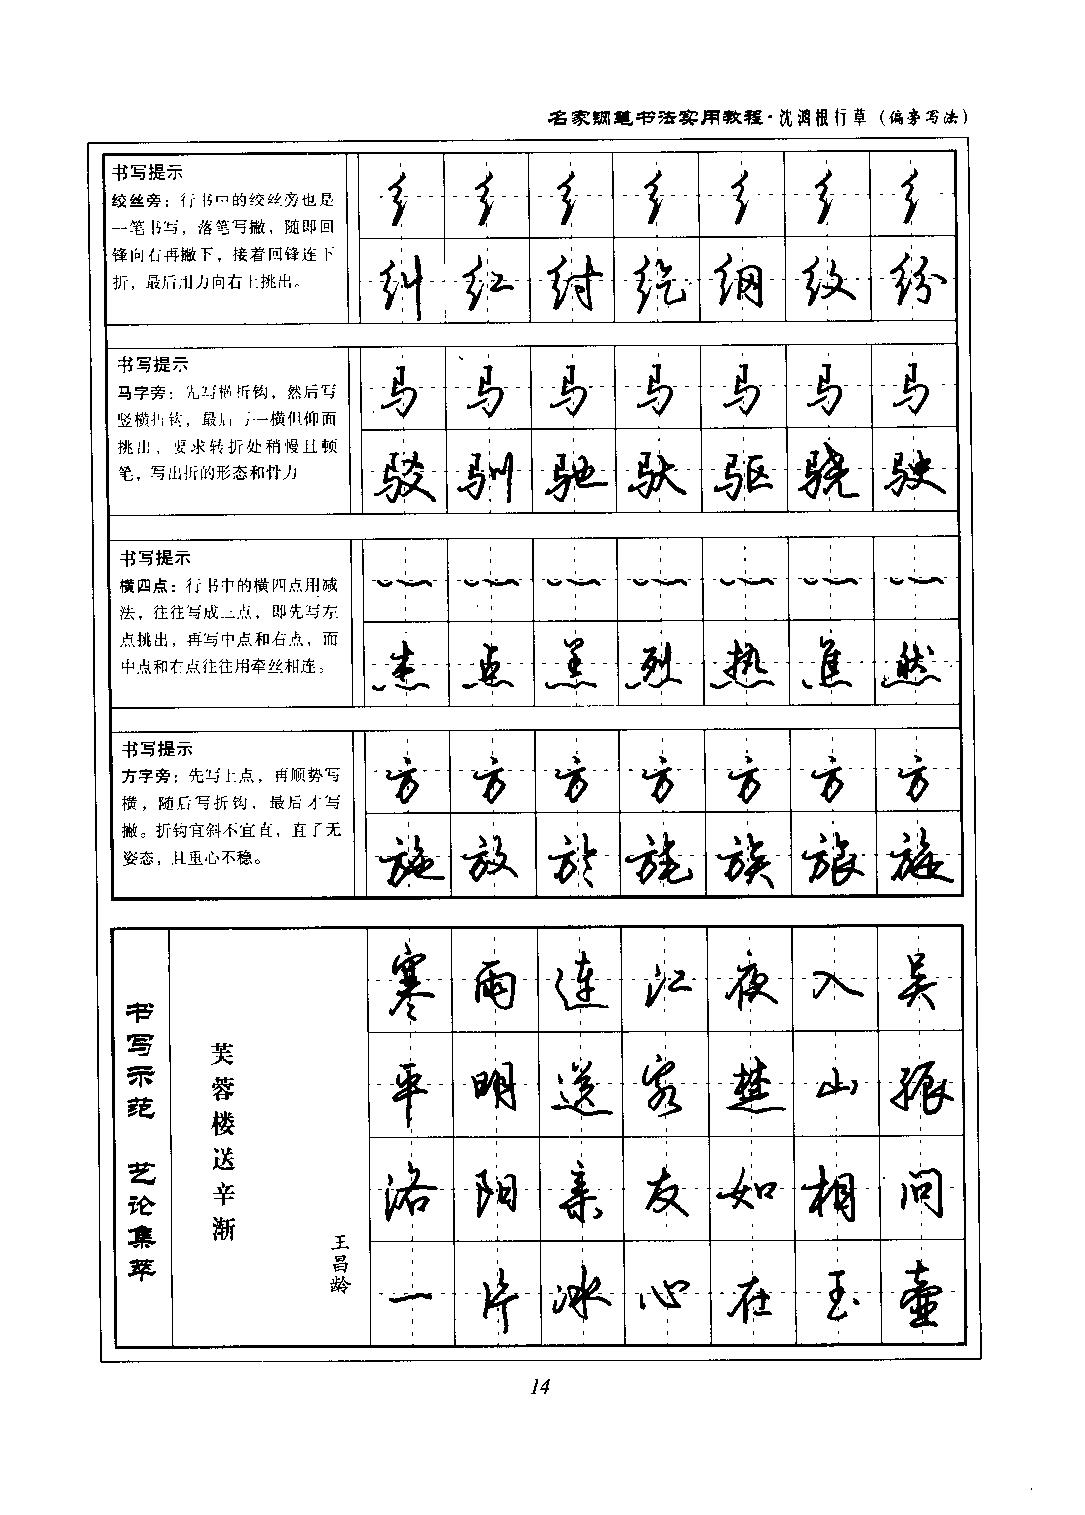 名家钢笔书法实用教程·沈鸿根行草（偏旁写法）
书写提示
绞丝旁：行书中的绞丝旁也是
一笔书写，落笔写撇，随即回
锋向右再撇下，接着回锋连下
折，最后用力向右上挑出。
纟 纟 纟 纟 纟 纟 纟
纠 红 纣 纥 纲 纹 纷
书写提示
马字旁：先写横折钩，然后写
竖横折钩，最后写一横但仰面
挑出，要求转折处稍慢且顿
笔，写出折的形态和骨力
马 马 马 马 马 马 马
驳 驯 驰 驮 驱 骁 驶
书写提示
横四点：行书中的横四点用减
法，往往写成三点，即先写左
点挑出，再写中点和右点，而
中点和右点往往用牵丝相连。
灬 灬 灬 灬 灬 灬 灬
杰 点 羔 烈 热 焦 然
书写提示
方字旁：先写上点，再顺势写
横，随后写折钩，最后才写
撇。折钩宜斜不宜直，直了无
姿态，且重心不稳。
方 方 方 方 方 方 方
施 放 於 旄 族 旅 旋
书写示范 艺论集萃
芙蓉楼送辛渐
王昌龄
寒雨连江夜入吴
平明送客楚山孤
洛阳亲友如相问
一片冰心在玉壶
14